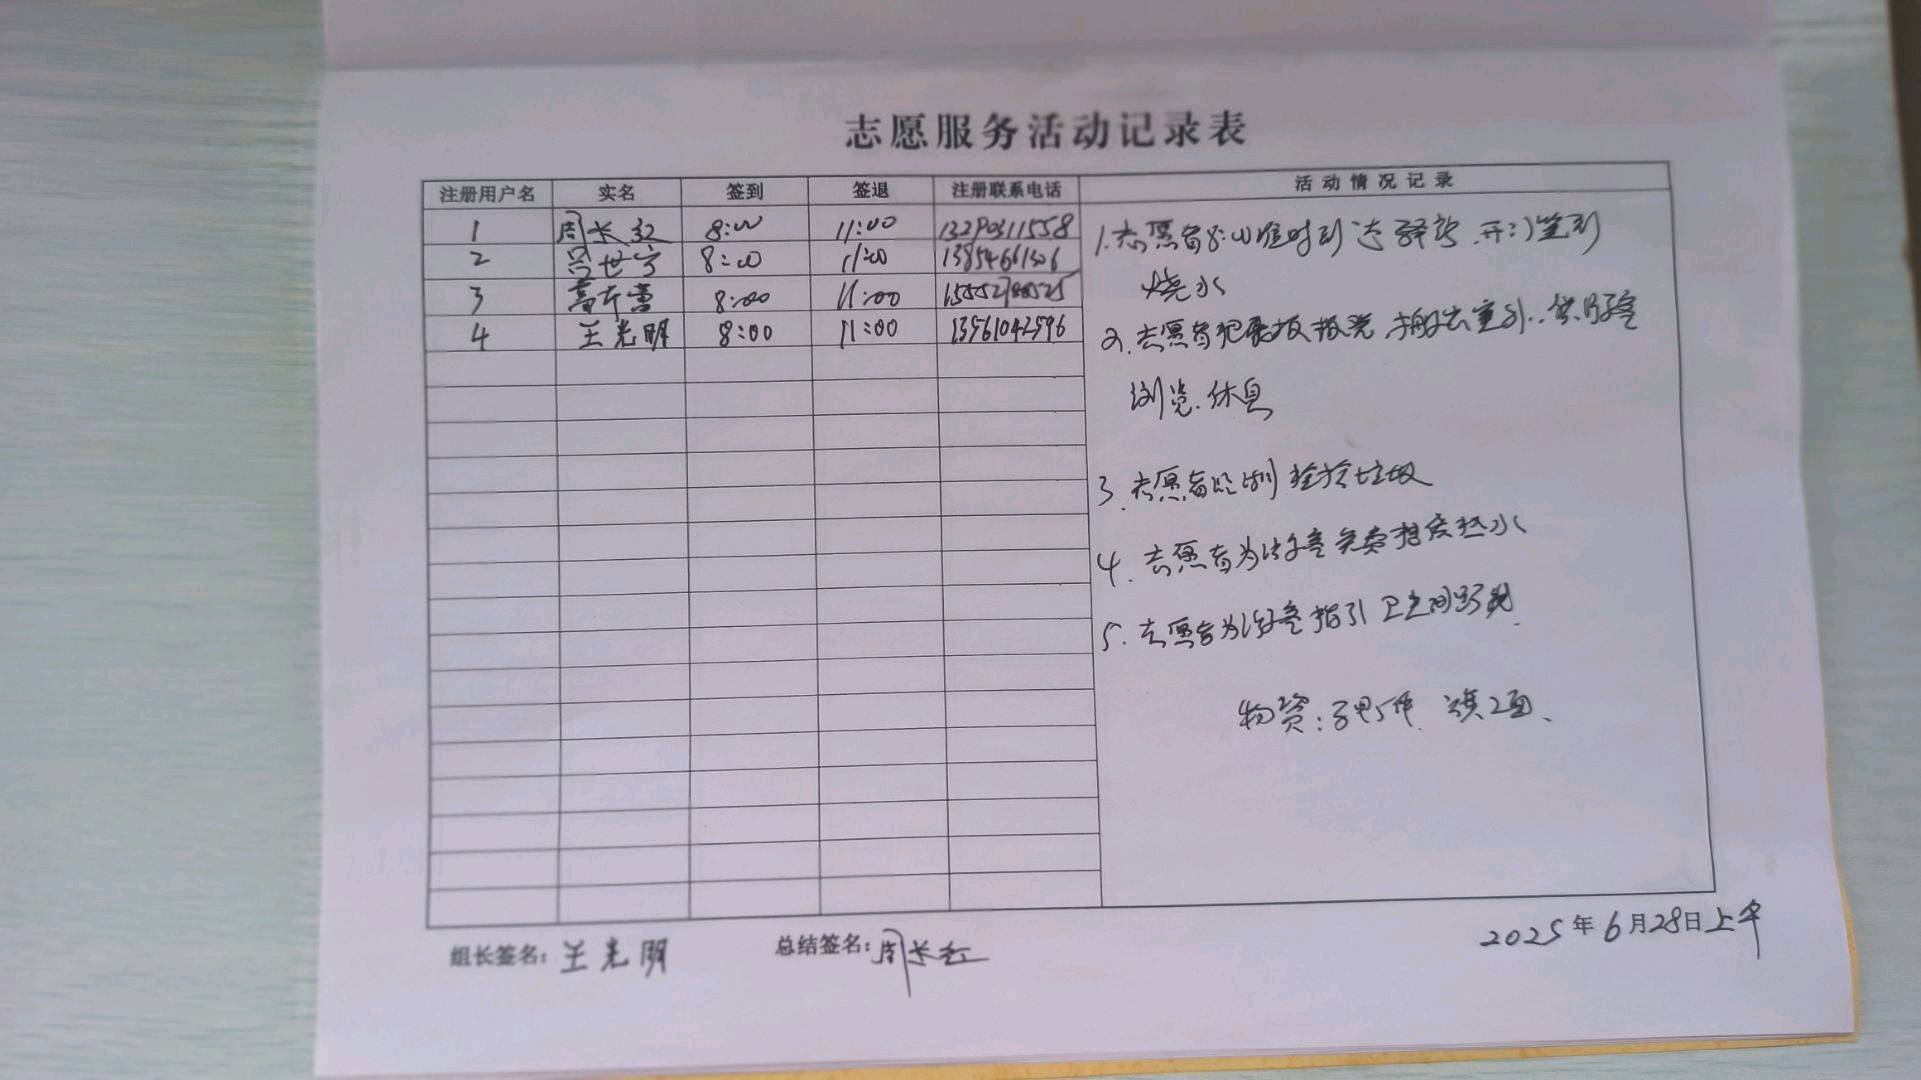 志愿服务活动记录表
注册用户名 实名 签到 签退 注册联系电话 活动情况记录
1 周长红 8:00 11:00 13290311558
2 吕世宁 8:00 11:00 13854661326
3 8:00 11:00
4 王光明 8:00 11:00 13561042596
1.志愿者8:00准时到达驿站.开门签到
烧水
2.志愿者把展板报凳.搬出室外..供游客
浏览.休息
3.志愿者 捡拾垃圾
4.志愿者为游客免费提供热水
5.志愿者为游客指引卫生间路线
物资:马甲5件 旗2面、
组长签名:王光明 总结签名:周长红
2025年6月28日上午